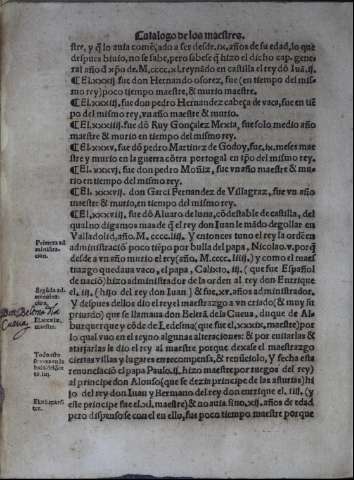 Catalogo de los maestres.
stre, y q̄ lo auia començado a ser desde .ix. años de su edad, lo que
despues biuio, no se sabe, pero sabese q̄ hizo el dicho cap. gene-
ral año đ xp̄o de. M.cccc.xl. reynādo en castilla el rey dō Iuā. ij.
¶ El. xxxij. fue don Hernando osorez, fue (en tiempo del mis
mo rey) poco tiempo maestre, & murio maestre.
¶ El. xxxiij. fue don pedro Hernandez cabeça de vaca, fue en tiē
po del mismo rey, vn año maestre & murio en el.
¶ El. xxxiiij. fue dō Ruy Gonçalez Mexia, fue solo medio año
maestre & murio en tiempo del mismo rey.
¶ El. xxxv. fue dō pedro Martinez de Godoy, fue. ix. meses mae
stre y murio en la guerra cōtra portogal en tp̄o del mismo rey.
¶ El. xxxvj. fue don pedro Moñiz, fue vn año maestre & mu-
rio en tiempo del mismo rey.
¶ El. xxxvij. don Garci Fernandez de Villagraz, fue vn año
maestre & murio, en tiempo del mismo rey.
¶ El. xxxviij. fue dō Aluaro de luna, cōdestable de castilla, del
qual no digamos mas de q̄ el rey don Iuan le mādo degollar en
Valladolid, año. M.cccc.liij. Y entonces tuuo el rey la ordē en
administraciō poco tiēpo por bulla del papa, Nicolao. v. por q̄
desde a vn año murio el rey (año, M.cccc.liiij.) y como el maes
trazgo quedaua vaco, el papa, Calixto, iij. ( que fue Español
de naciō) hizo administrador de la orden al rey don Enrrique
el, iij, (hijo del rey don Iuan ) & fue, xv, años administrador.
Y despues dello dio el rey el maestrazgo a vn criado (& muy su
priuado) que se llamaua don Beltrā de la Cueua, duque de Al-
burquerque y cōde de Ledesma (que fue el, xxxix, maestre) por
lo qual vuo en el reyno algunas alteraciones: & por euitarlas &
atajarlas le dio el rey al maestre porque dexasse el maestrazgo
ciertas villas y lugares en recompensa, & renūciolo, Y fecha esta
renunciaciō el papa Paulo. ij. hizo maestre por ruegos del rey)
al principe don Alonso (que se dezia principe de las asturias) hi
jo del rey don Iuan y Hermano del rey don enrrique el. iiij. (y
este principe fue el. xl. maestre) & no auia sino. xij. años de edad
pero dispenso se con el en ello, fue poco tiempo maestre porque
Primera ad
ministra-
cion.
Segūda ad
ministracion
don Beltran de la
Cueua
maestre.